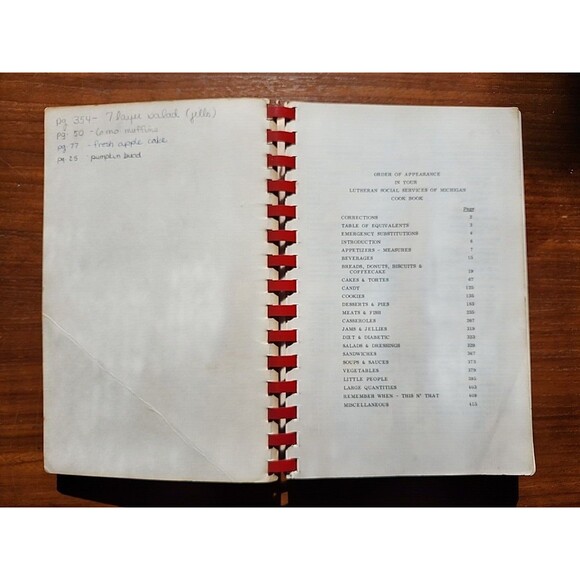 pg 354 - 7 layer salad (jello)
pg. 50 - 6 mo muffins
pg 77 - fresh apple cake
pg 25 pumpkin bread
ORDER OF APPEARANCE
IN YOUR
LUTHERAN SOCIAL SERVICES OF MICHIGAN
COOK BOOK
Page
CORRECTIONS 2
TABLE OF EQUIVALENTS 3
EMERGENCY SUBSTITUTIONS 4
INTRODUCTION
APPETIZERS - MEASURES 7
BEVERAGES 15
BREADS, DONUTS, BISCUITS &
COFFEECAKE 19
CAKES & TORTES 67
CANDY 125
COOKIES 135
DESSERTS & PIES
MEATS & FISH
CASSEROLES 287
JAMS & JELLIES 319
DIET & DIABETIC
SALADS & DRESSINGS
SANDWICHES 367
SOUPS & SAUCES 373
VEGETABLES 379
LITTLE PEOPLE
LARGE QUANTITIES
REMEMBER WHEN - THIS N' THAT
MISCELLANEOUS